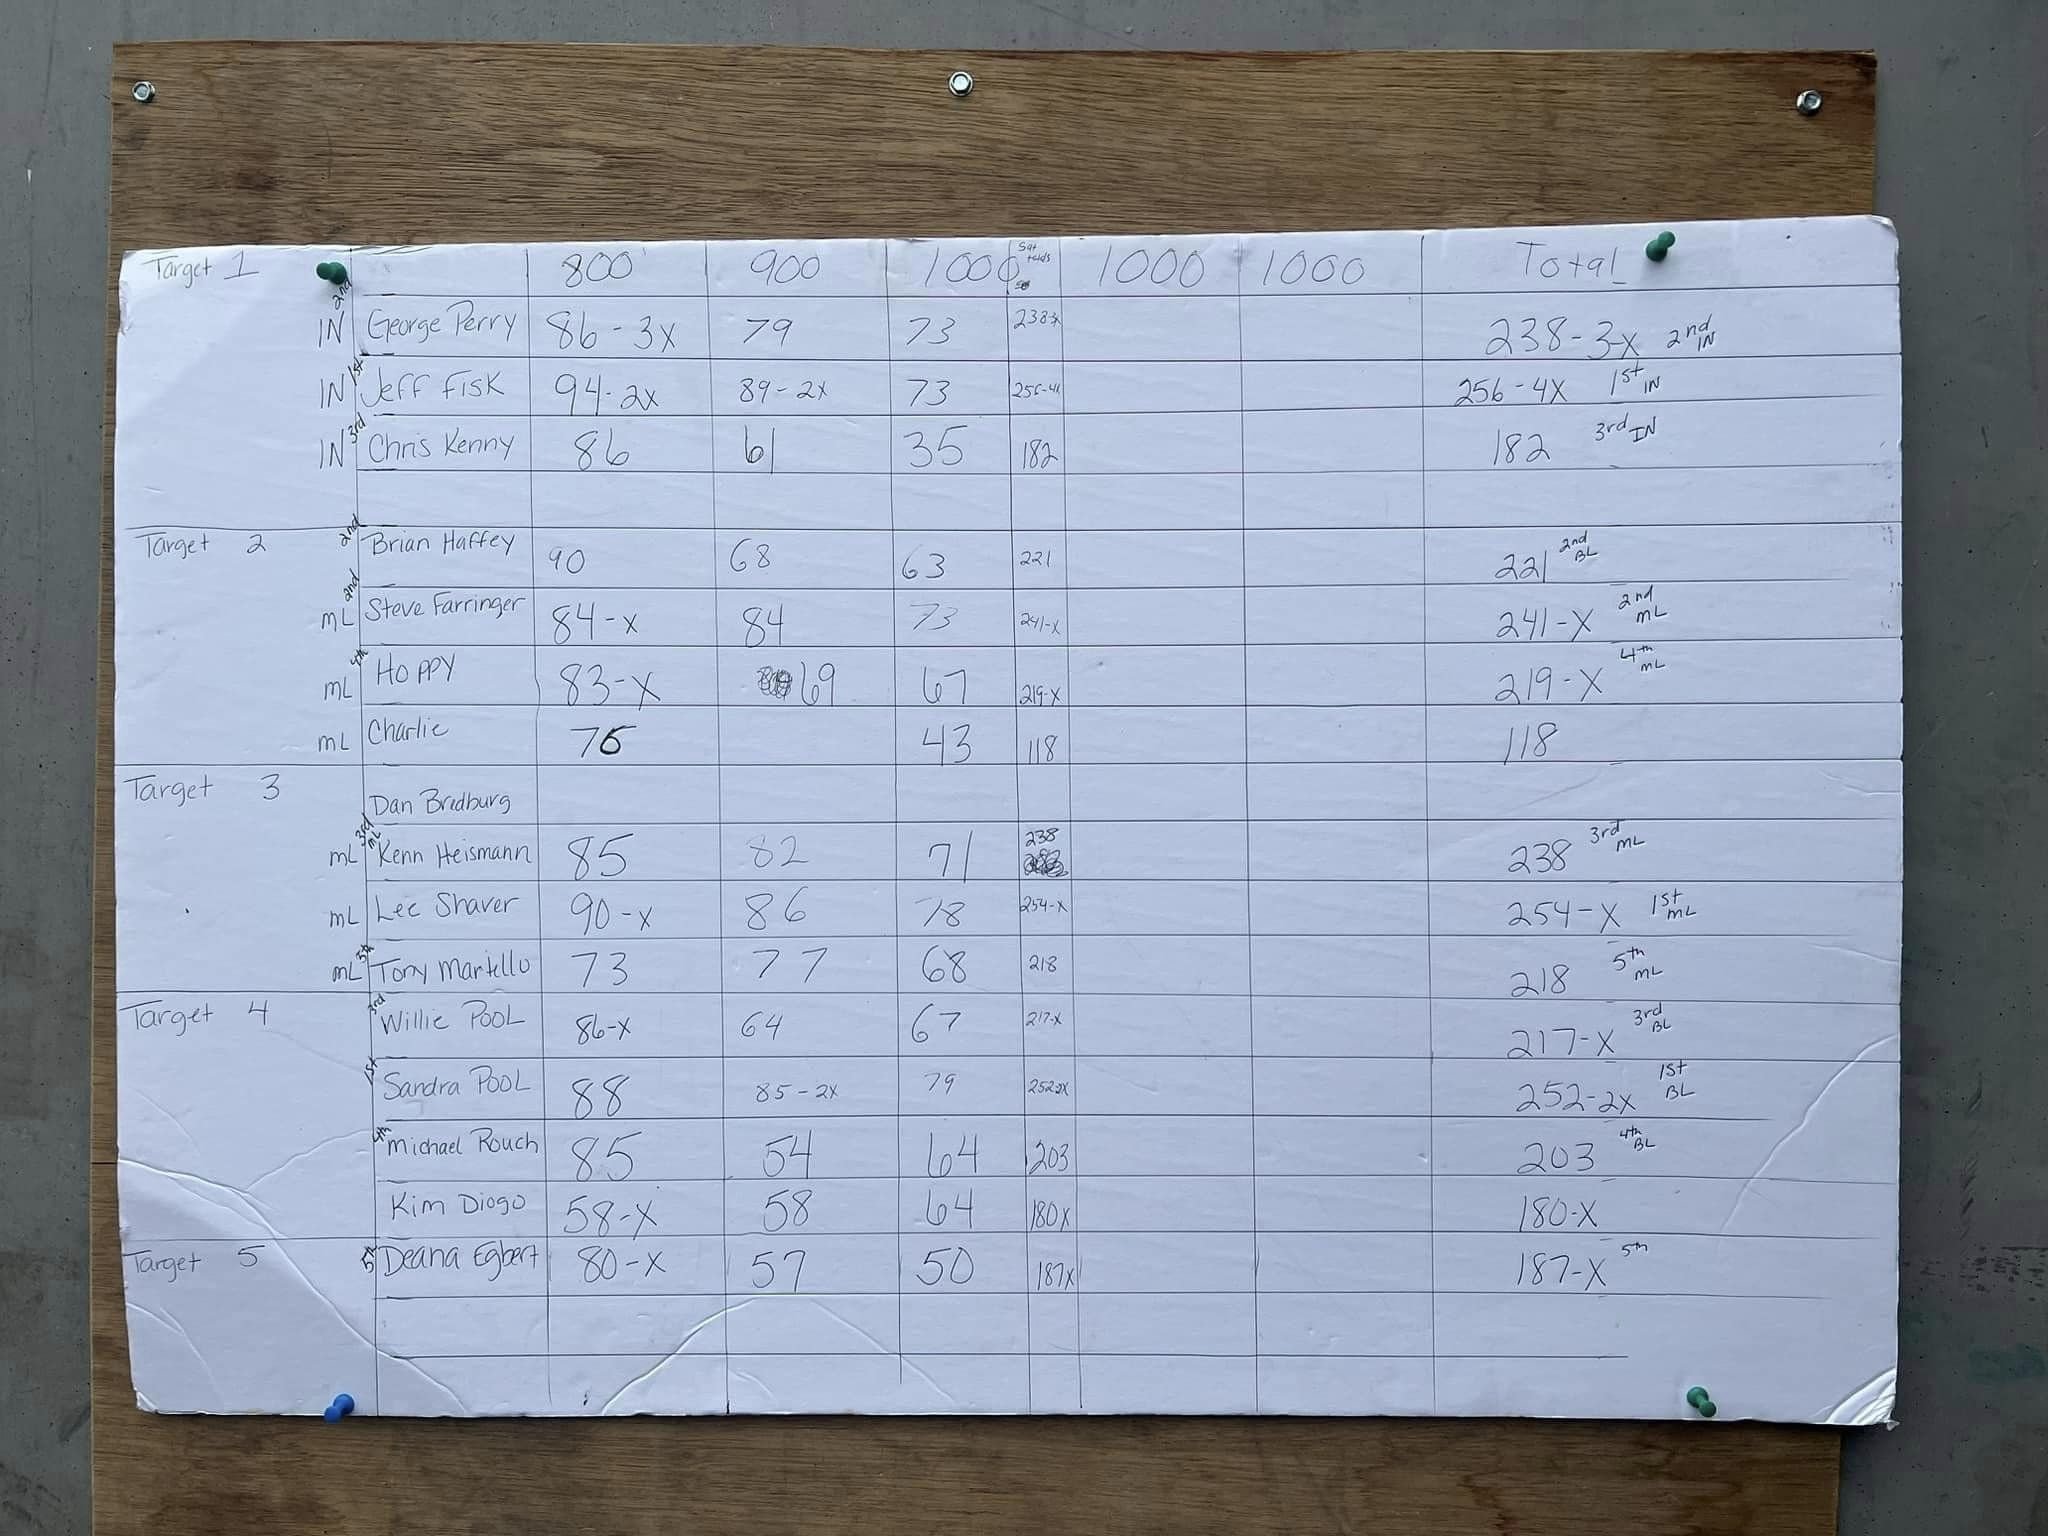 Target 1 800 900 1000 Sat 1000 1000 Total
2nd IN George Perry 86-3X 79 73 238-3X 238-3-X 2nd IN
1st IN Jeff Fisk 94-2X 89-2X 73 256-4X 256-4X 1st IN
3rd IN Chris Kenny 86 61 35 182 182 3rd IN
Target 2 2nd Brian Haffey 90 68 63 221 221 2nd BL
2nd mL Steve Farringer 84-X 84 73 241-X 241-X 2nd mL
4th mL HOPPY 83-X 69 67 219-X 219-X 4th mL
mL Charlie 75 43 118 118
Target 3 Dan Bredburg
3rd mL mL Kenn Heismann 85 82 71 238 238 3rd mL
mL Lee Shaver 90-X 86 78 254-X 254-X 1st mL
5th mL Tony Martello 73 77 68 218 218 5th mL
Target 4 3rd Willie POOL 86-X 64 67 217-X 217-X 3rd BL
1st Sandra POOL 88 85-2X 79 252-2X 252-2X 1st BL
4th Michael Rouch 85 54 64 203 203 4th BL
Kim Diogo 58-X 58 64 180X 180-X
Target 5 5th Deana Egbert 80-X 57 50 187X 187-X 5th